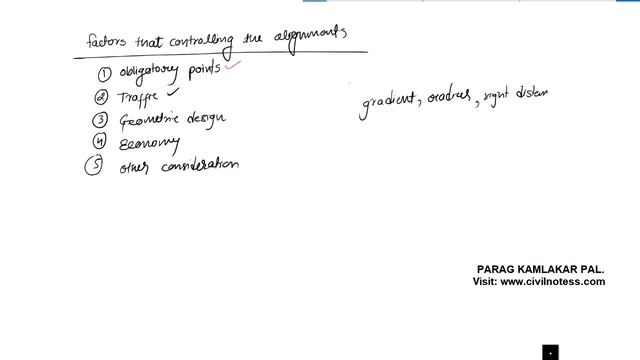 factors that controlling the alignments
① obligatory points
② Traffic
③ Geometric design
④ Economy
⑤ other consideration
gradient, radius, sight distan
PARAG KAMLAKAR PAL.
Visit: www.civilnotess.com